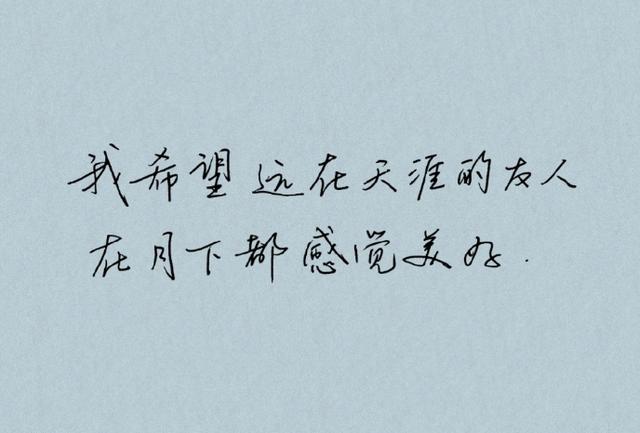 我希望远在天涯的友人
在月下都感觉美好.